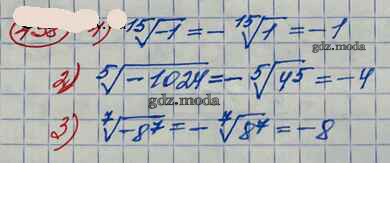 1) ¹⁵√-1 = - ¹⁵√1 = -1
gdz.moda
2) ⁵√-1024 = - ⁵√4⁵ = -4
gdz.moda
3) ⁷√-8⁷ = - ⁷√8⁷ = -8